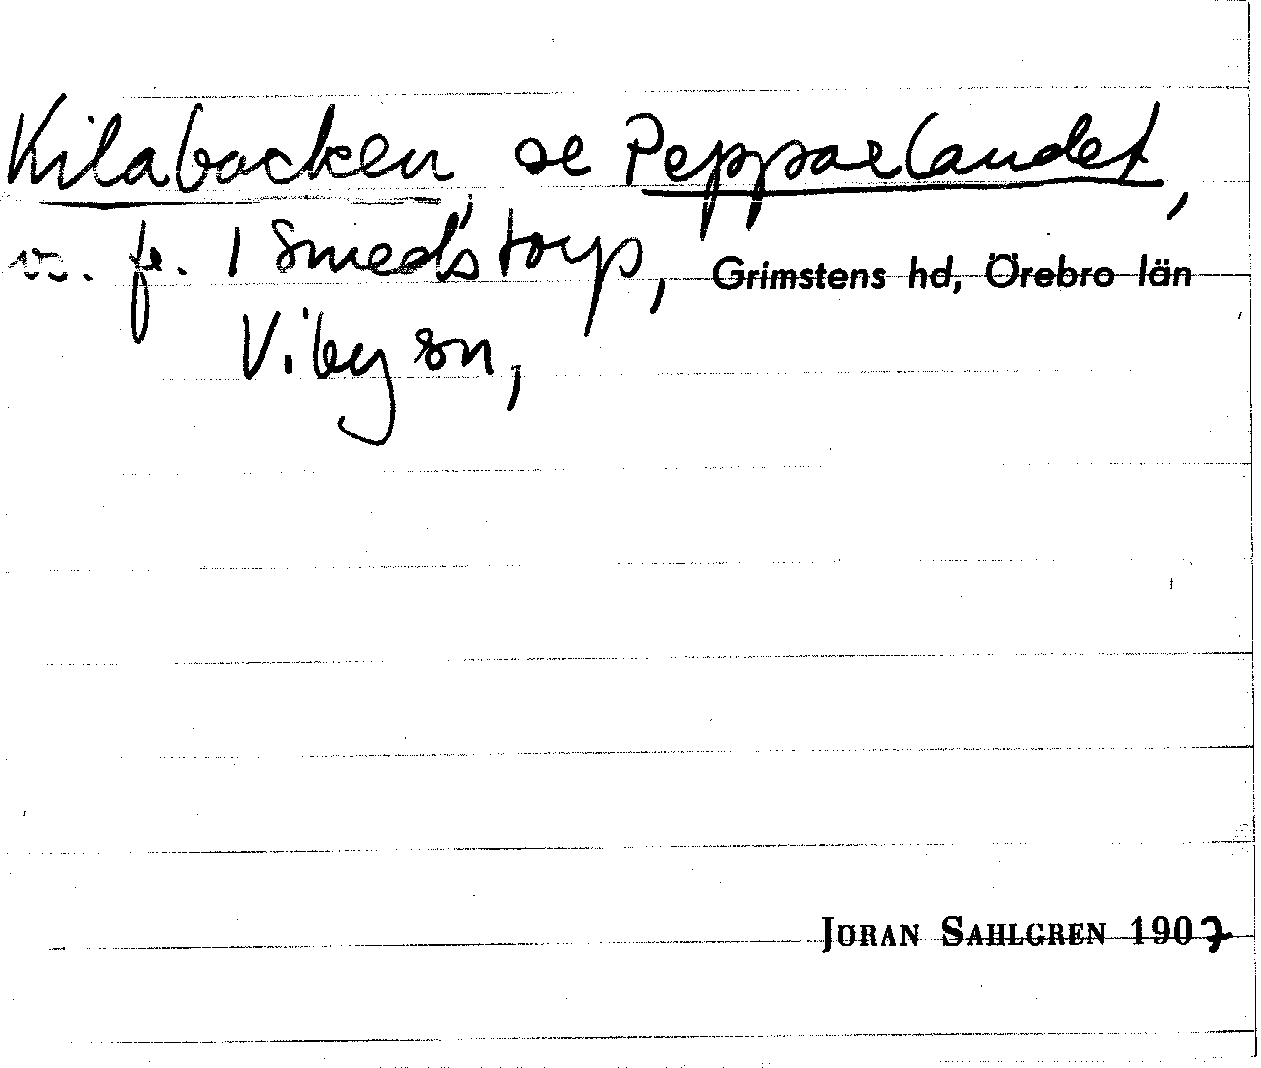 Kilabacken, se Pepparlandet,
vs. fr. 1 Smedstorp, Grimstens hd, Örebro län
Viby sn,
JÖRAN SAHLGREN 1907